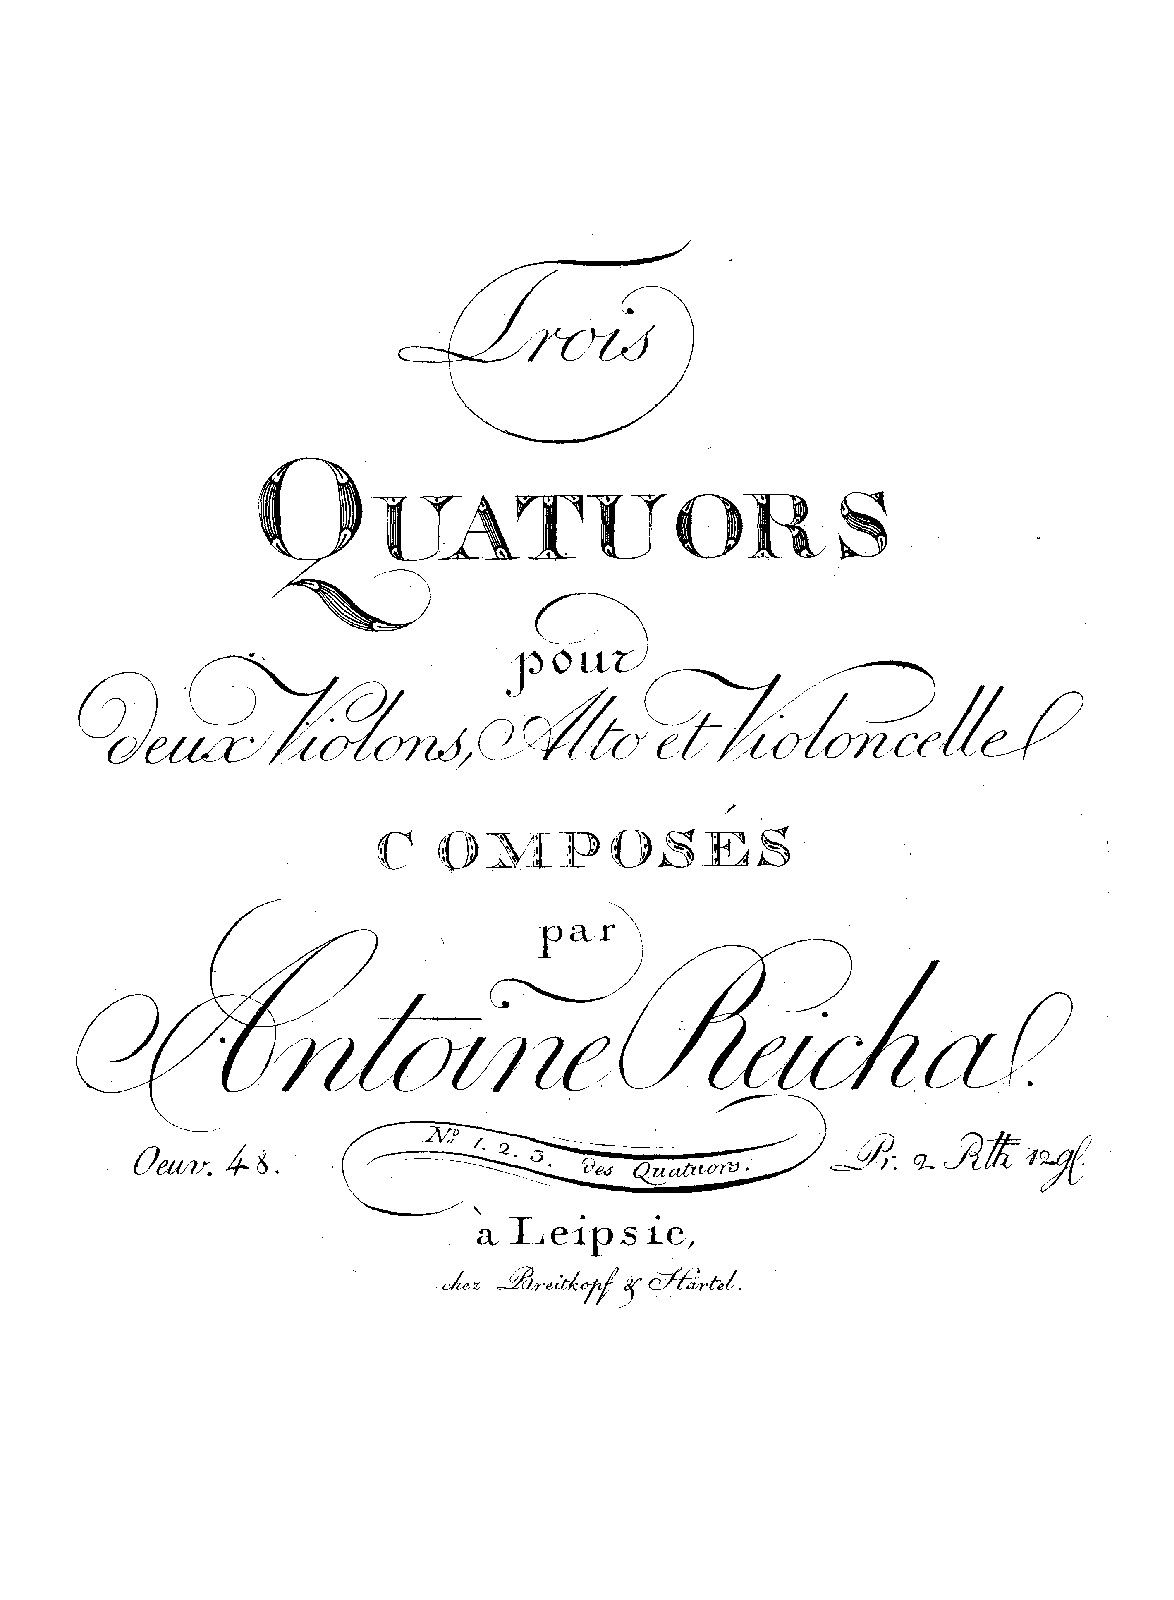 Trois
QUATUORS
pour
deux Violons, Alto et Violoncelle
COMPOSÉS
par
Antoine Reicha.
Oeuv. 48. No. 1. 2. 3. des Quatuors. Pr. 2 Rth 12 gl.
à Leipsic,
chez Breitkopf & Härtel.